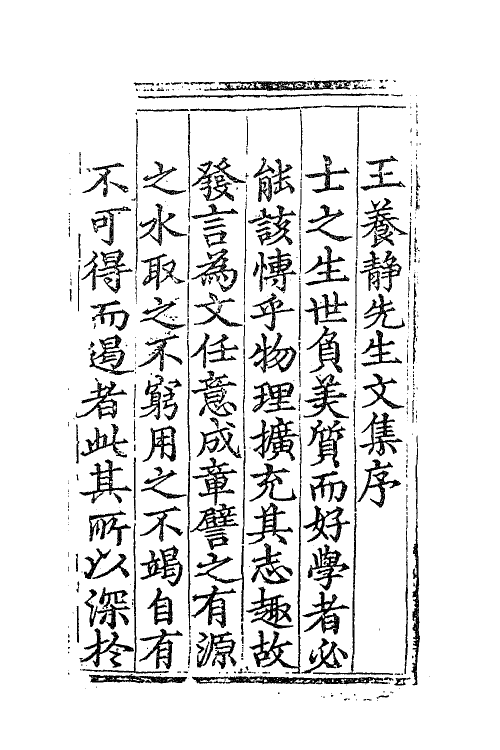 王養静先生文集序
士之生世負美質而好學者必
能該愽乎物理擴充其志趣故
發言為文任意成章譬之有源
之水取之不窮用之不竭自有
不可得而遏者此其所以深扵